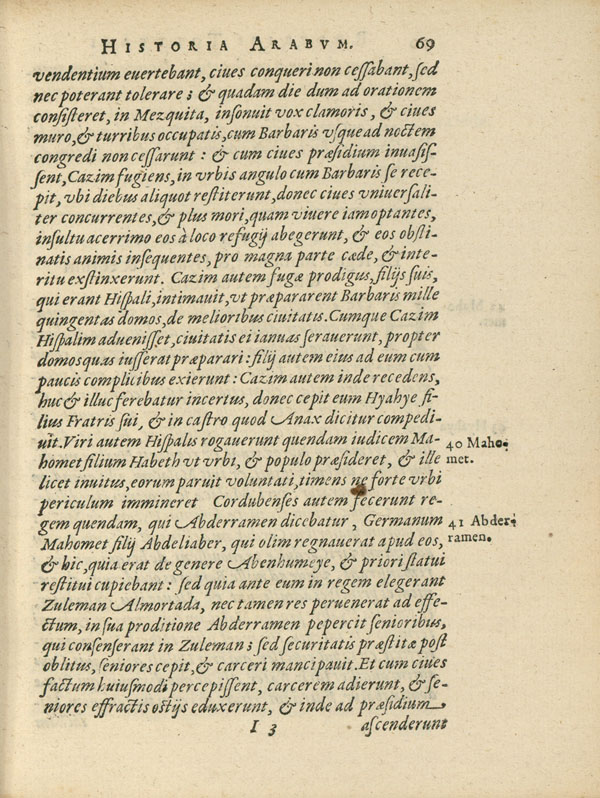 HISTORIA ARABVM. 69
vendentium euertebant, ciues conqueri non ceſſabant, ſed
nec poterant tolerare; & quadam die dum ad orationem
conſiſteret, in Mezquita, inſonuit vox clamoris, & ciues
muro, & turribus occupatis, cum Barbaris vſque ad noctem
congredi non ceſſarunt: & cum ciues præſidium inuaſiſ-
ſent, Cazim fugiens, in vrbis angulo cum Barbaris ſe rece-
pit, vbi diebus aliquot reſtiterunt, donec ciues vniuerſali-
ter concurrentes, & plus mori, quam viuere iam optantes,
inſultu acerrimo eos à loco refugij abegerunt, & eos obſti-
natis animis inſequentes, pro magna parte cæde, & inte-
ritu exſtinxerunt. Cazim autem fugæ prodigus, filijs ſuis,
qui erant Hiſpali, intimauit, vt præpararent Barbaris mille
quingentas domos, de melioribus ciuitatis. Cumque Cazim
Hiſpalim adueniſſet, ciuitatis ei ianuas ſerauerunt, propter
domos quas iuſſerat præparari: filij autem eius ad eum cum
paucis complicibus exierunt: Cazim autem inde recedens,
huc & illuc ferebatur incertus, donec cepit eum Hyahye fi-
lius Fratris ſui, & in caſtro quod Anax dicitur compedi-
uit. Viri autem Hiſpalis rogauerunt quendam iudicem Ma-
homet filium Habeth vt vrbi, & populo præſideret, & ille
40 Maho-
met.
licet inuitus, eorum paruit voluntati, timens ne forte vrbi
periculum immineret Cordubenſes autem fecerunt re-
gem quendam, qui Abderramen dicebatur, Germanum
41 Abder-
ramen.
Mahomet filij Abdeliaber, qui olim regnauerat apud eos,
& hic, quia erat de genere Abenhumeye, & priori ſtatui
reſtitui cupiebant: ſed quia ante eum in regem elegerant
Zuleman Almortada, nec tamen res peruenerat ad effe-
ctum, in ſua proditione Abderramen pepercit ſenioribus,
qui conſenſerant in Zuleman; ſed ſecuritatis præſtitæ poſt
oblitus, ſeniores cepit, & carceri mancipauit. Et cum ciues
factum huiuſmodi percepiſſent, carcerem adierunt, & ſe-
niores effractis oſtijs eduxerunt, & inde ad præſidium
I 3 aſcenderunt